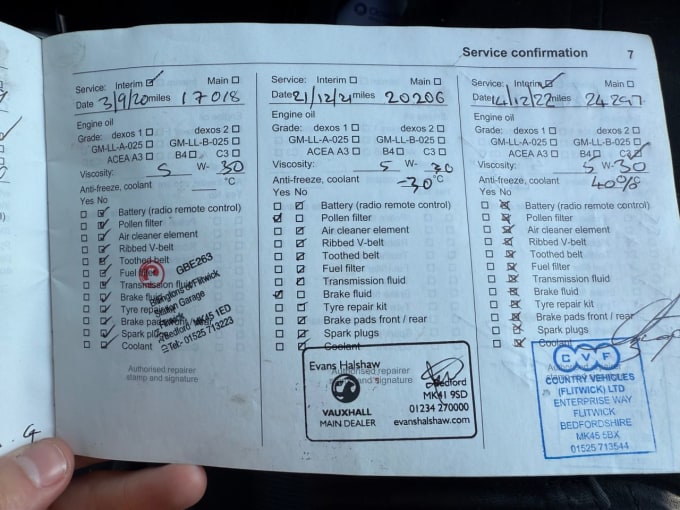 Service confirmation 7
Service: Interim Main
Date 3/9/20 miles 17018
Engine oil
Grade: dexos 1 dexos 2
GM-LL-A-025 GM-LL-B-025
ACEA A3 B4 C3
Viscosity: 5 W- 30
Anti-freeze, coolant °C
Yes No
Battery (radio remote control)
Pollen filter
Air cleaner element
Ribbed V-belt
Toothed belt
Fuel filter
Transmission fluid
Brake fluid
Tyre repair
Brake pads front
Spark plugs
Coolant
GBE263
Flitwick
Station Garage
Flitwick
Bedford MK45 1ED
Tel: 01525 713223
Authorised repairer
stamp and signature
Service: Interim Main
Date 21/12/21 miles 20206
Engine oil
Grade: dexos 1 dexos 2
GM-LL-A-025 GM-LL-B-025
ACEA A3 B4 C3
Viscosity: 5 W- 30
Anti-freeze, coolant -30°C
Yes No
Battery (radio remote control)
Pollen filter
Air cleaner element
Ribbed V-belt
Toothed belt
Fuel filter
Transmission fluid
Brake fluid
Tyre repair kit
Brake pads front / rear
Spark plugs
Coolant
Authorised repairer
stamp and signature
Evans Halshaw
VAUXHALL
MAIN DEALER
Bedford
MK41 9SD
01234 270000
evanshalshaw.com
Service: Interim Main
Date 14/12/22 miles 24297
Engine oil
Grade: dexos 1 dexos 2
GM-LL-A-025 GM-LL-B-025
ACEA A3 B4 C3
Viscosity: 5 W- 30
Anti-freeze, coolant °C
Yes No
Battery (radio remote control)
Pollen filter
Air cleaner element
Ribbed V-belt
Toothed belt
Fuel filter
Transmission fluid
Brake fluid
Tyre repair kit
Brake pads front / rear
Spark plugs
Coolant
CVF
COUNTRY VEHICLES
(FLITWICK) LTD
ENTERPRISE WAY
FLITWICK
BEDFORDSHIRE
MK45 5BX
01525 713544